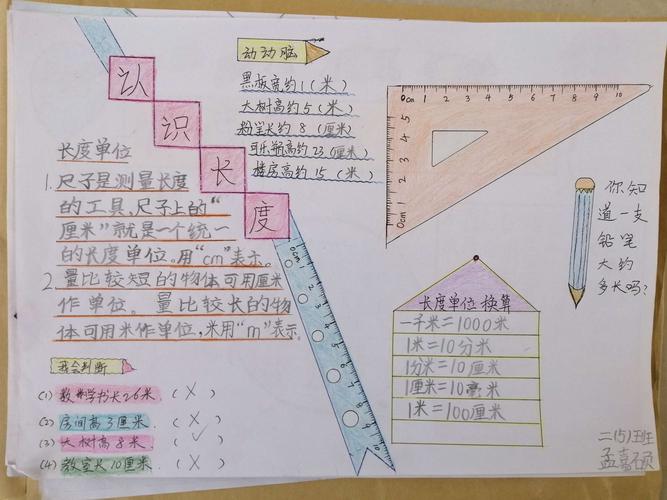 认识长度
长度单位
1. 尺子是测量长度
的工具,尺子上的“
厘米”就是一个统一
的长度单位。用“cm”表示。
2. 量比较短的物体可用厘米
作单位。量比较长的物
体可用米作单位,米用“m”表示。
我会判断
(1) 数学书长26米。(×)
(2) 房间高3厘米。(×)
(3) 大树高8米。(✓)
(4) 教室长10厘米。(×)
动动脑
黑板宽约1(米)
大树高约5(米)
粉笔长约8(厘米)
可乐瓶高约23(厘米)
楼房高约15(米)
0cm 1 2 3 4 5 6 7 8 9 10
5
4
3
2
1
0cm
长度单位换算
一千米=1000米
1米=10分米
1分米=10厘米
1厘米=10毫米
1米=100厘米
你知
道一支
铅笔
大约
多长吗?
二(5)班
孟嘉硕